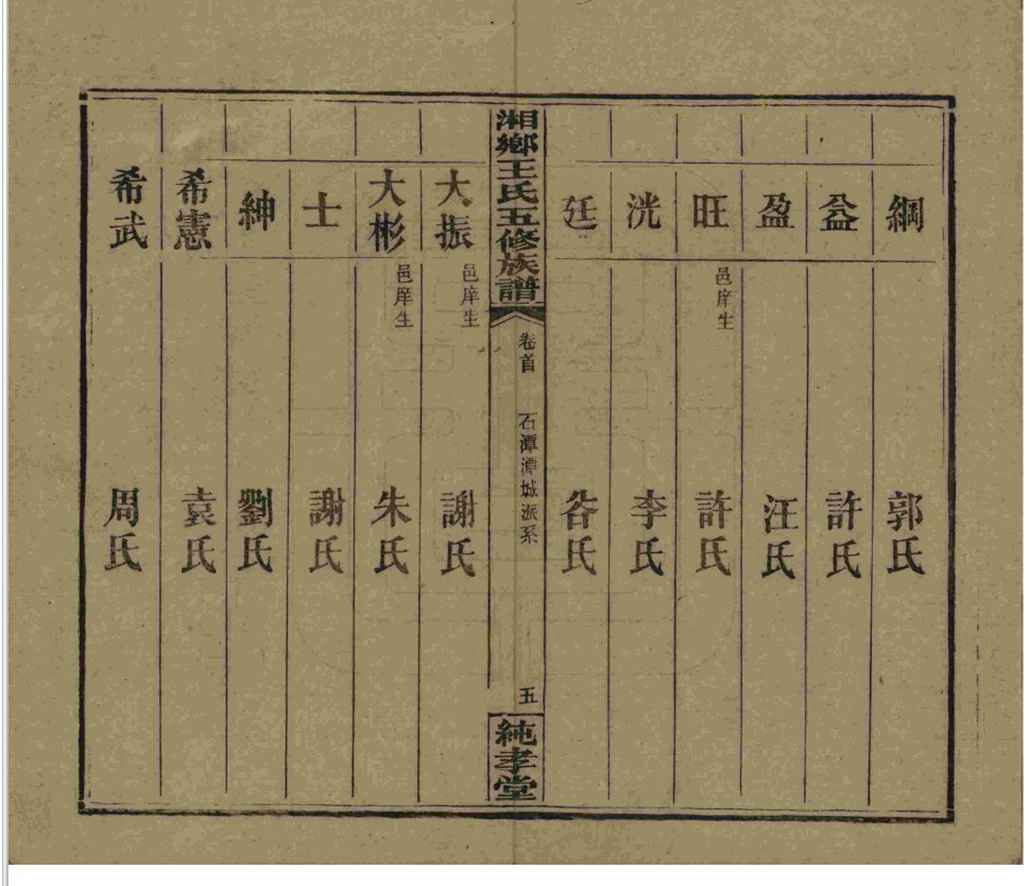 綱 郭氏
益 許氏
盈 汪氏
旺 邑庠生 許氏
洸 李氏
廷 昝氏
湘鄉王氏五修族譜 卷首 石潭潭城派系 五 純孝堂
大振 邑庠生 謝氏
大彬 邑庠生 朱氏
士 謝氏
紳 劉氏
希憲 袁氏
希武 周氏